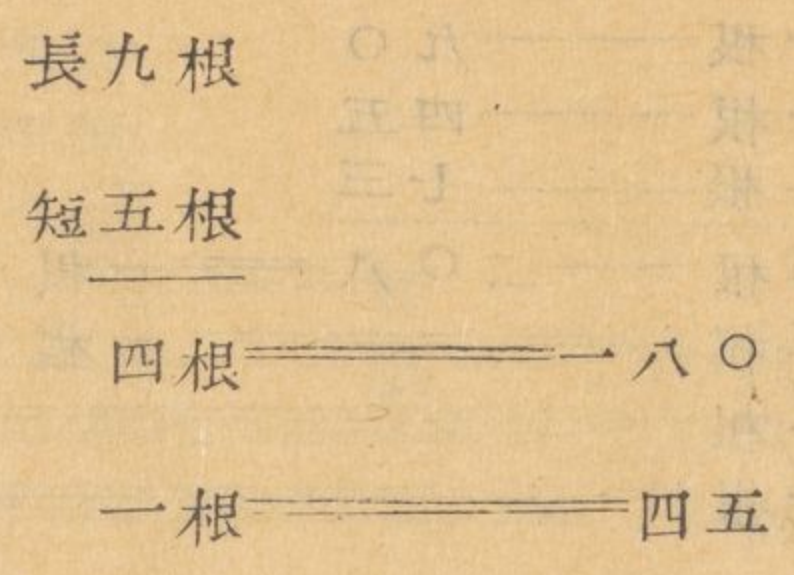 長九根
短五根
四根══一八〇
一根══四五